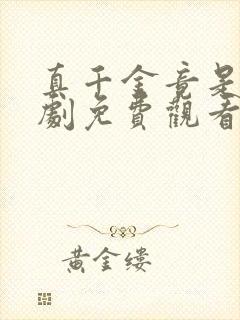 真千金竟是
劇免費觀看
黃金縷